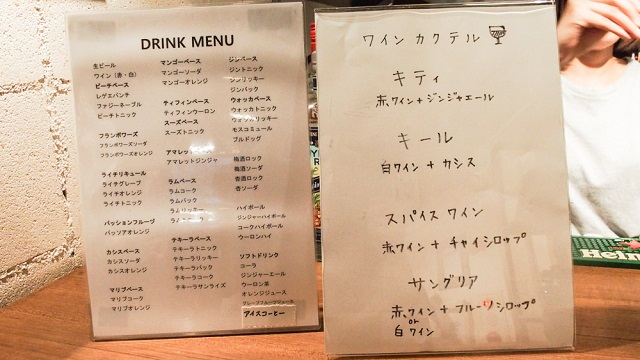 DRINK MENU
生ビール
ワイン (赤・白)
ピーチベース
レゲエパンチ
ファジーネーブル
ピーチトニック
フランボワーズ
フランボワーズソーダ
フランボワーズオレンジ
ライチリキュール
ライチグレープ
ライチオレンジ
ライチトニック
パッションフルーツ
パッソアオレンジ
カシスベース
カシスソーダ
カシスオレンジ
マリブベース
マリブコーク
マリブオレンジ
マンゴーベース
マンゴーソーダ
マンゴーオレンジ
ティフィンベース
ティフィンウーロン
スーズベース
スーズトニック
アマレット
アマレットジンジャ
ラムベース
ラムコーク
ラムバック
ラムリッキー
テキーラベース
テキーラトニック
テキーラリッキー
テキーラバック
テキーラコーク
テキーラサンライズ
ジンベース
ジントニック
ジンリッキー
ジンバック
ウォッカベース
ウォッカトニック
ウォッカリッキー
モスコミュール
ブルドッグ
梅酒ロック
梅酒ソーダ
杏酒ロック
杏ソーダ
ハイボール
ジンジャーハイボール
コークハイボール
ウーロンハイ
ソフトドリンク
コーラ
ジンジャーエール
ウーロン茶
オレンジジュース
グレープフルーツジュース
アイスコーヒー
ワインカクテル
キティ
赤ワイン+ジンジャエール
キール
白ワイン + カシス
スパイスワイン
赤ワイン + チャイシロップ
サングリア
赤ワイン + フルーツシロップ
or
白ワイン
Heine